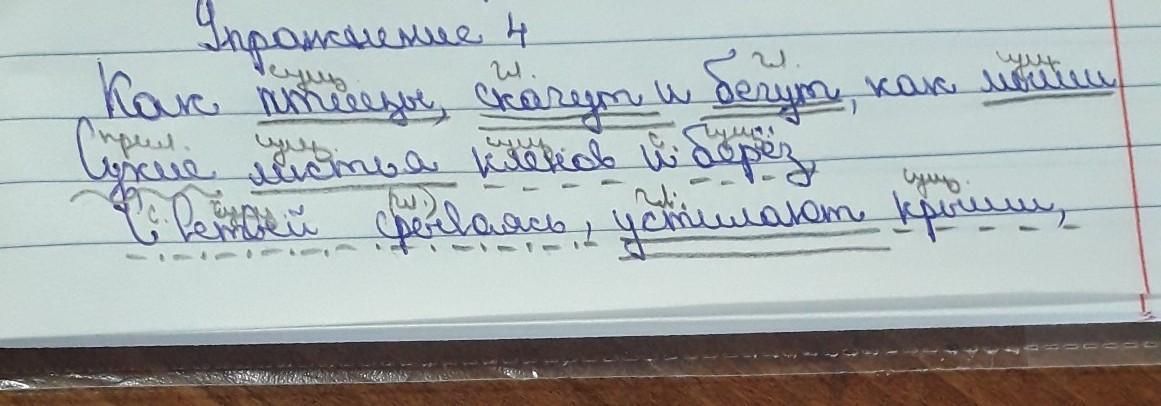 Упражнение 4
сущ. гл. гл. сущ.
Как птицы, скачут и бегут, как мыши
прил. сущ. сущ. с. сущ.
Сухие листья клёнов и берёз
с. сущ. гл. сущ.
С ветвей срываясь, устилают крыши,